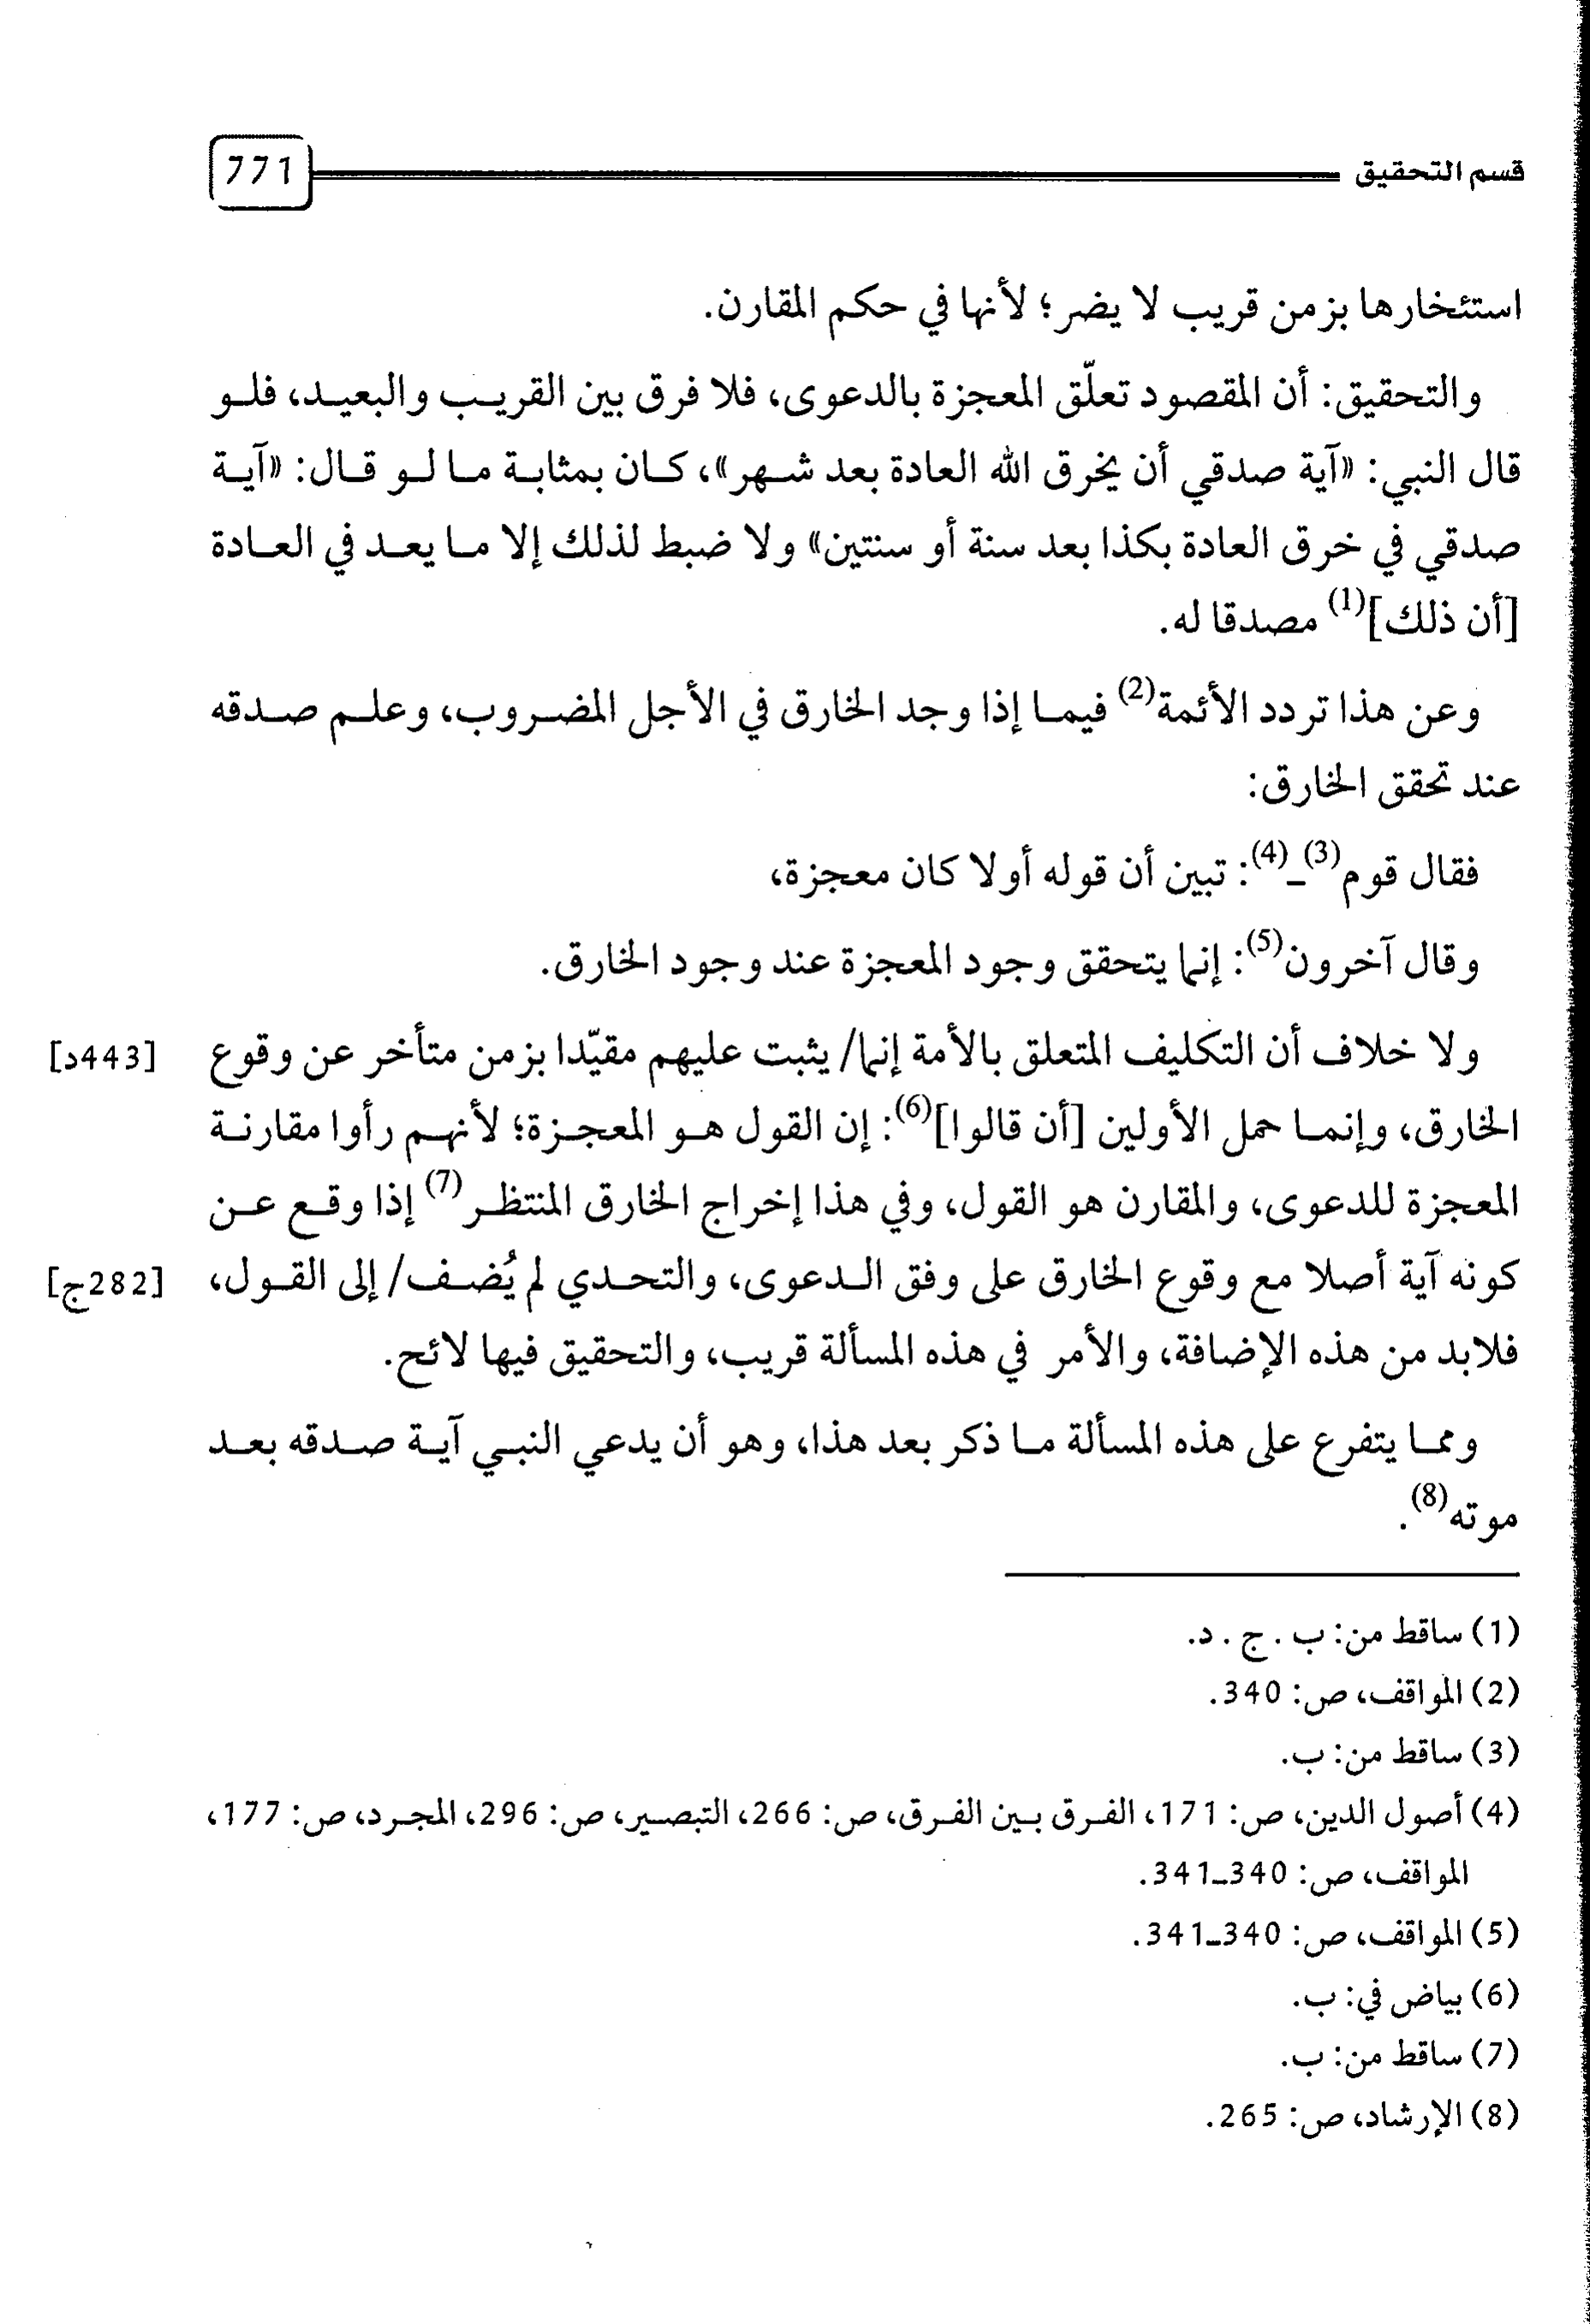 قسم التحقيق 771
استئخارها بزمن قريب لا يضر؛ لأنها في حكم المقارن.
والتحقيق: أن المقصود تعلّق المعجزة بالدعوى، فلا فرق بين القريب والبعيد، فلو
قال النبي: «آية صدقي أن يخرق الله العادة بعد شهر»، كان بمثابة ما لو قال: «آية
صدقي في خرق العادة بكذا بعد سنة أو سنتين» ولا ضبط لذلك إلا ما يعد في العادة
[أن ذلك](1) مصدقا له.
وعن هذا تردد الأئمة(2) فيما إذا وجد الخارق في الأجل المضروب، وعلم صدقه
عند تحقق الخارق:
فقال قوم(3)ـ(4): تبين أن قوله أولا كان معجزة،
وقال آخرون(5): إنما يتحقق وجود المعجزة عند وجود الخارق.
ولا خلاف أن التكليف المتعلق بالأمة إنما/ يثبت عليهم مقيّدا بزمن متأخر عن وقوع [443د]
الخارق، وإنما حمل الأولين [أن قالوا](6): إن القول هو المعجزة؛ لأنهم رأوا مقارنة
المعجزة للدعوى، والمقارن هو القول، وفي هذا إخراج الخارق المنتظر(7) إذا وقع عن
كونه آية أصلا مع وقوع الخارق على وفق الدعوى، والتحدي لم يُضف/ إلى القول، [282ج]
فلابد من هذه الإضافة، والأمر في هذه المسألة قريب، والتحقيق فيها لائح.
ومما يتفرع على هذه المسألة ما ذكر بعد هذا، وهو أن يدعي النبي آية صدقه بعد
موته(8).
(1) ساقط من: ب . ج . د.
(2) المواقف، ص: 340.
(3) ساقط من: ب.
(4) أصول الدين، ص: 171، الفرق بين الفرق، ص: 266، التبصير، ص: 296، المجرد، ص: 177،
المواقف، ص: 340ـ341.
(5) المواقف، ص: 340ـ341.
(6) بياض في: ب.
(7) ساقط من: ب.
(8) الإرشاد، ص: 265.